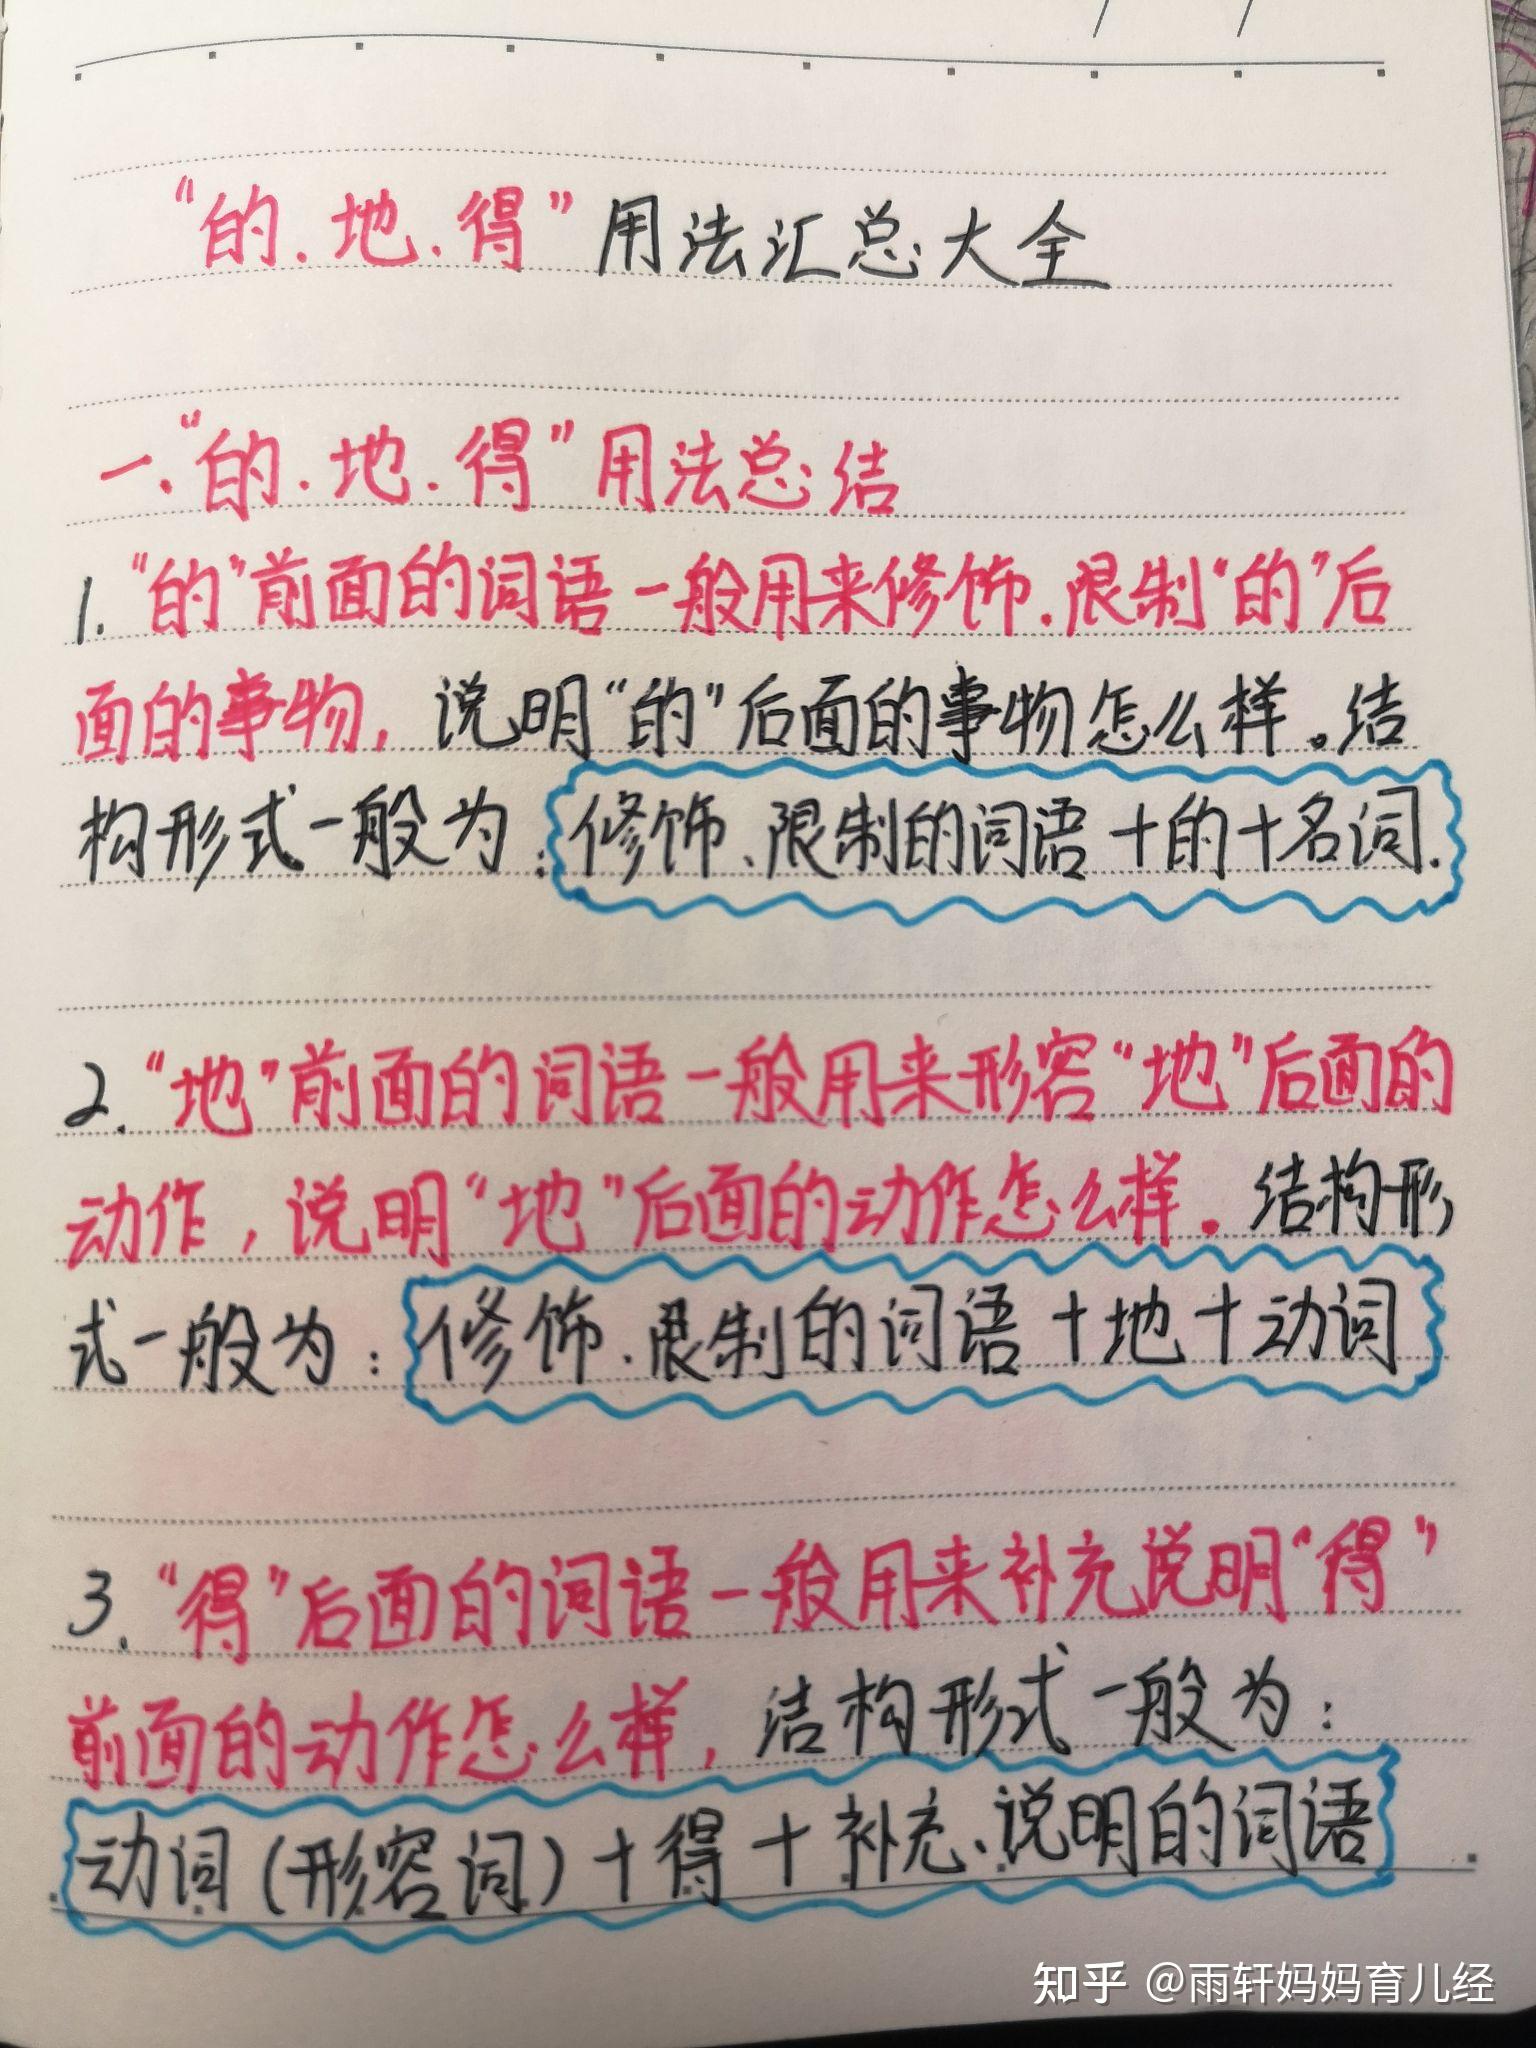 “的.地.得”用法汇总大全
一.“的.地.得”用法总结
1.“的”前面的词语一般用来修饰.限制“的”后
面的事物,说明“的”后面的事物怎么样。结
构形式一般为:修饰、限制的词语+的+名词.
2.“地”前面的词语一般用来形容“地”后面的
动作,说明“地”后面的动作怎么样.结构形
式一般为:修饰.限制的词语+地+动词
3.“得”后面的词语一般用来补充说明“得”
前面的动作怎么样,结构形式一般为:
动词(形容词)+得+补充、说明的词语
知乎 @雨轩妈妈育儿经